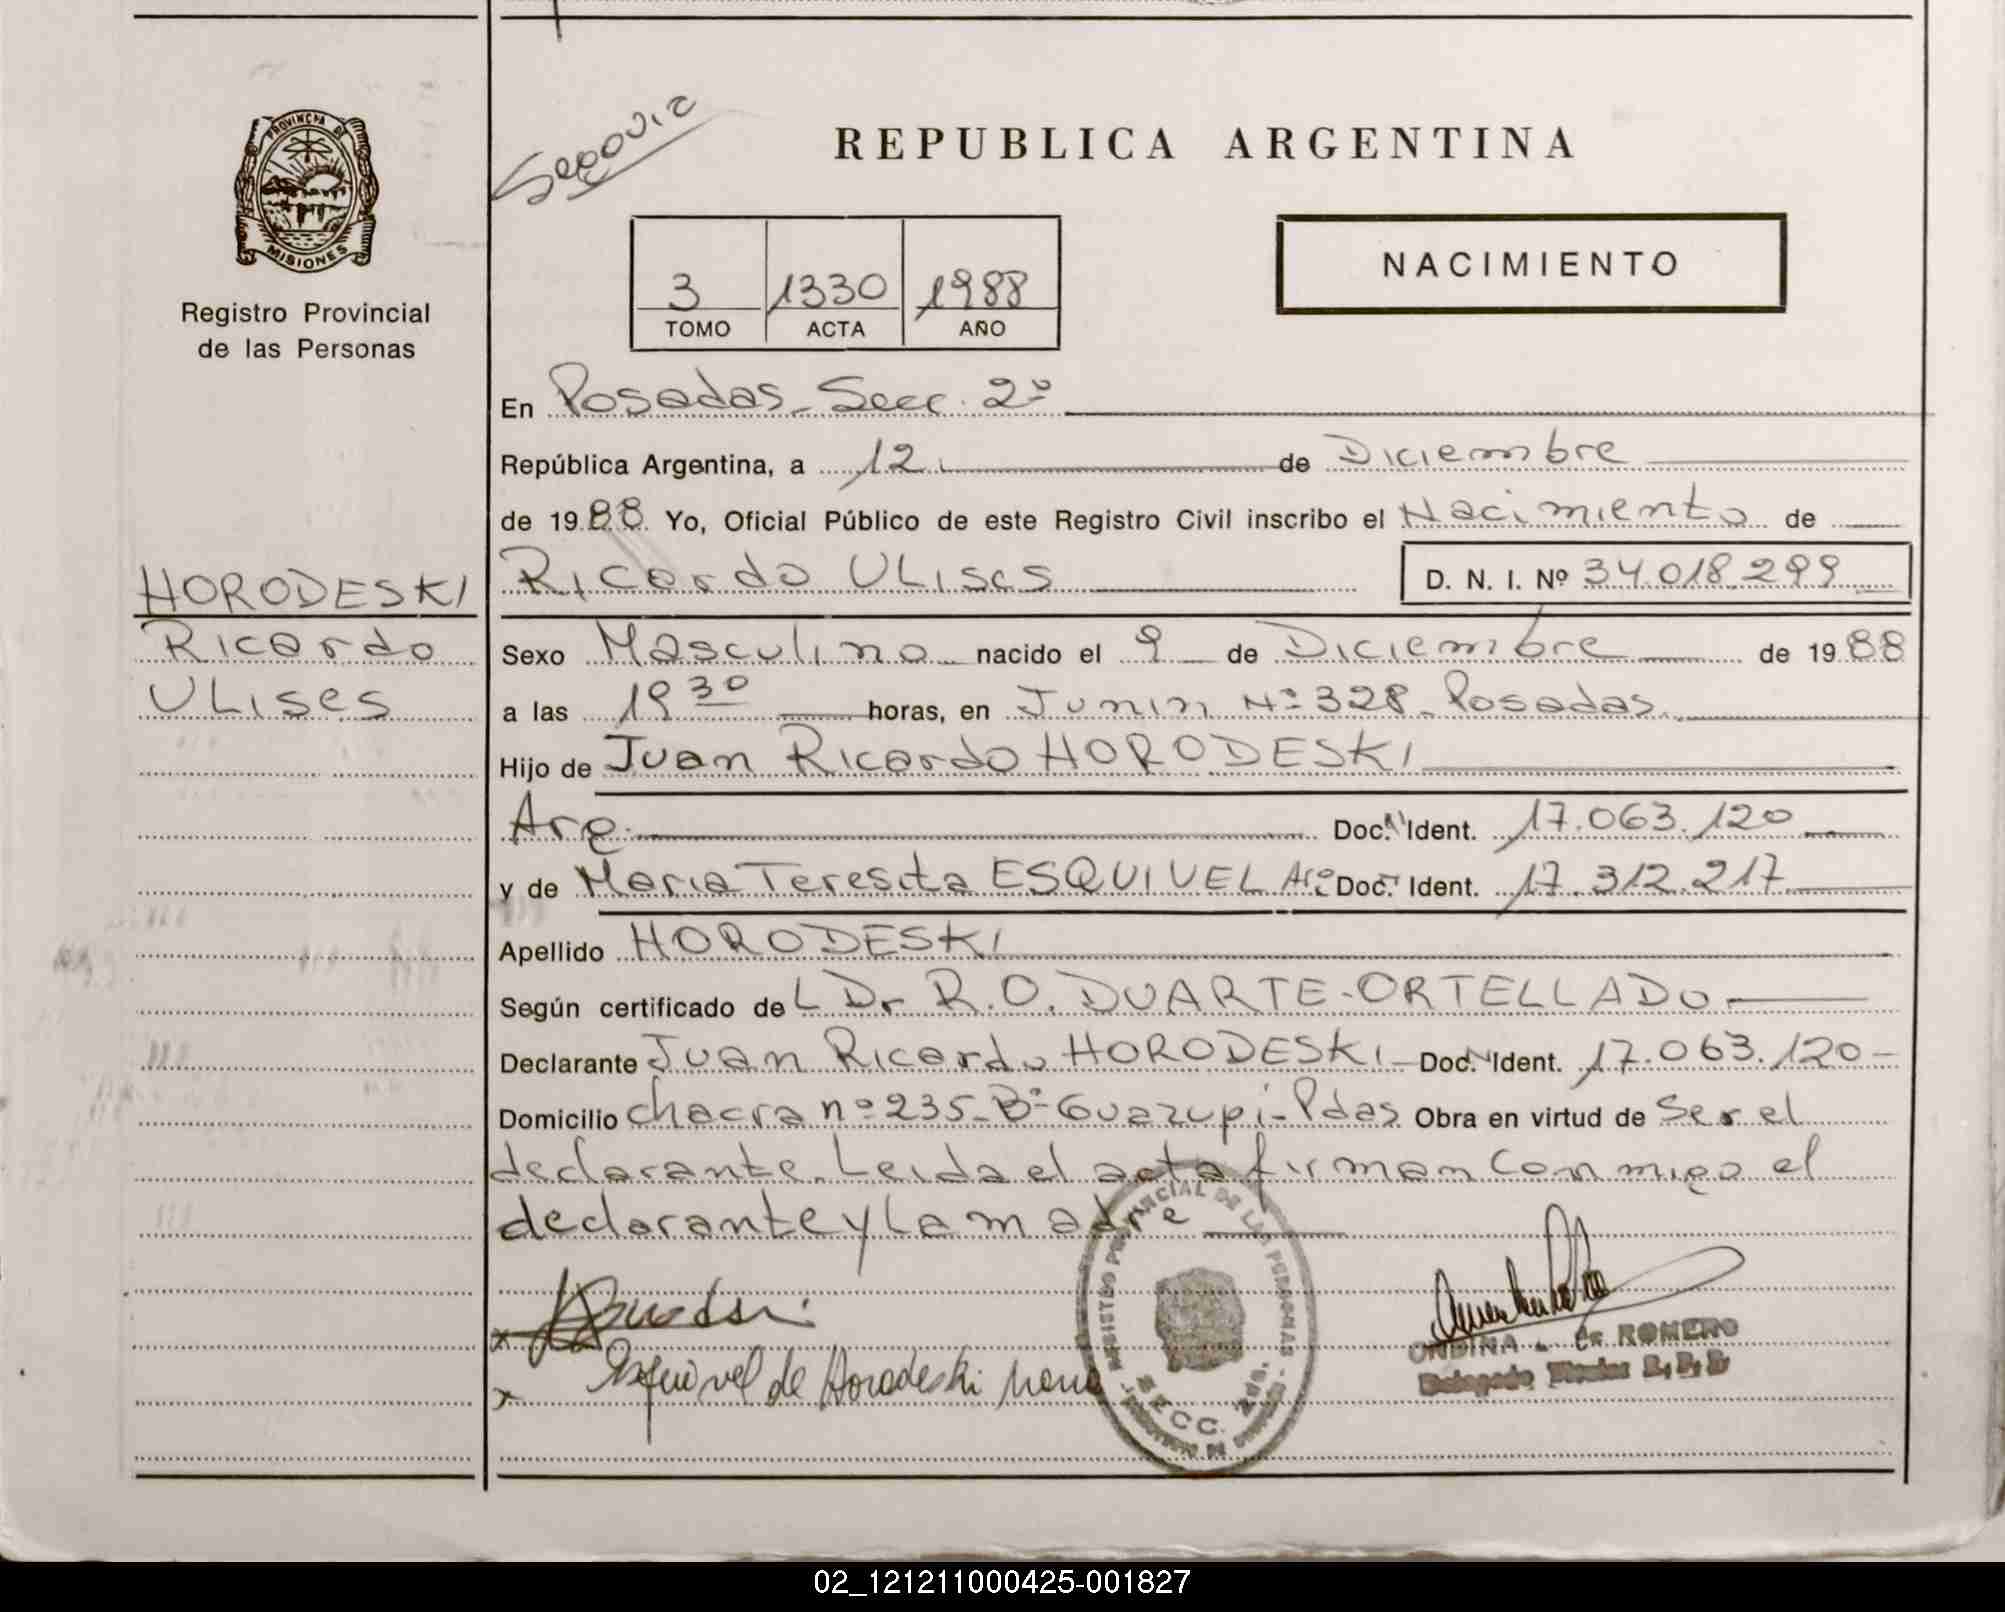 PROVINCIA DE
MISIONES
Registro Provincial
de las Personas
HORODESKI
Ricardo
ULises
Segovia
REPUBLICA ARGENTINA
NACIMIENTO
3 1330 1988
TOMO ACTA AÑO
En Posadas - Secc. 2º
República Argentina, a 12 de Diciembre
de 1988 Yo, Oficial Público de este Registro Civil inscribo el Nacimiento de
Ricardo ULises D. N. I. Nº 34.018.299
Sexo Masculino nacido el 9 de Diciembre de 1988
a las 19 30 horas, en Junin Nº 328 - Posadas.
Hijo de Juan Ricardo HORODESKI
Arg. Doc. Ident. 17.063.120
y de Maria Teresita ESQUIVEL Arg. Doc. Ident. 17.312.217
Apellido HORODESKI
Según certificado de L Dr R.O. DUARTE-ORTELLADO
Declarante Juan Ricardo HORODESKI - Doc. Ident. 17.063.120-
Domicilio chacra nº 235 - Bº Guazupi - Pdas Obra en virtud de Ser el
declarante. Leida el acta firman conmigo el
declarante y La madre
x
x Esquivel de Horodeski Maria
REGISTRO PROVINCIAL DE LAS PERSONAS
SECC. 2da.
ONDINA L. de ROMERO
Delegado Titular R.P.P
02_121211000425-001827